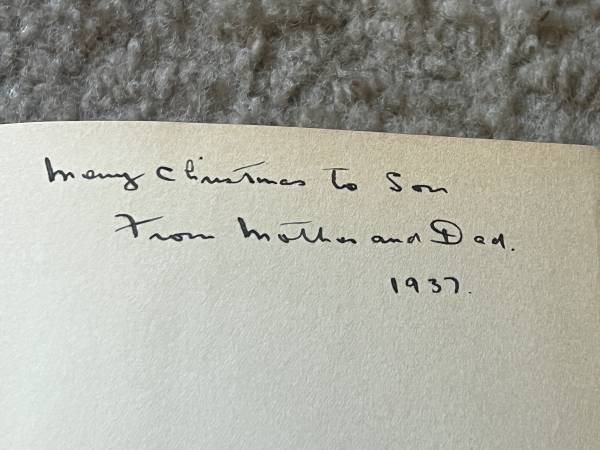 Merry Christmas to Son
From Mother and Dad.
1937.